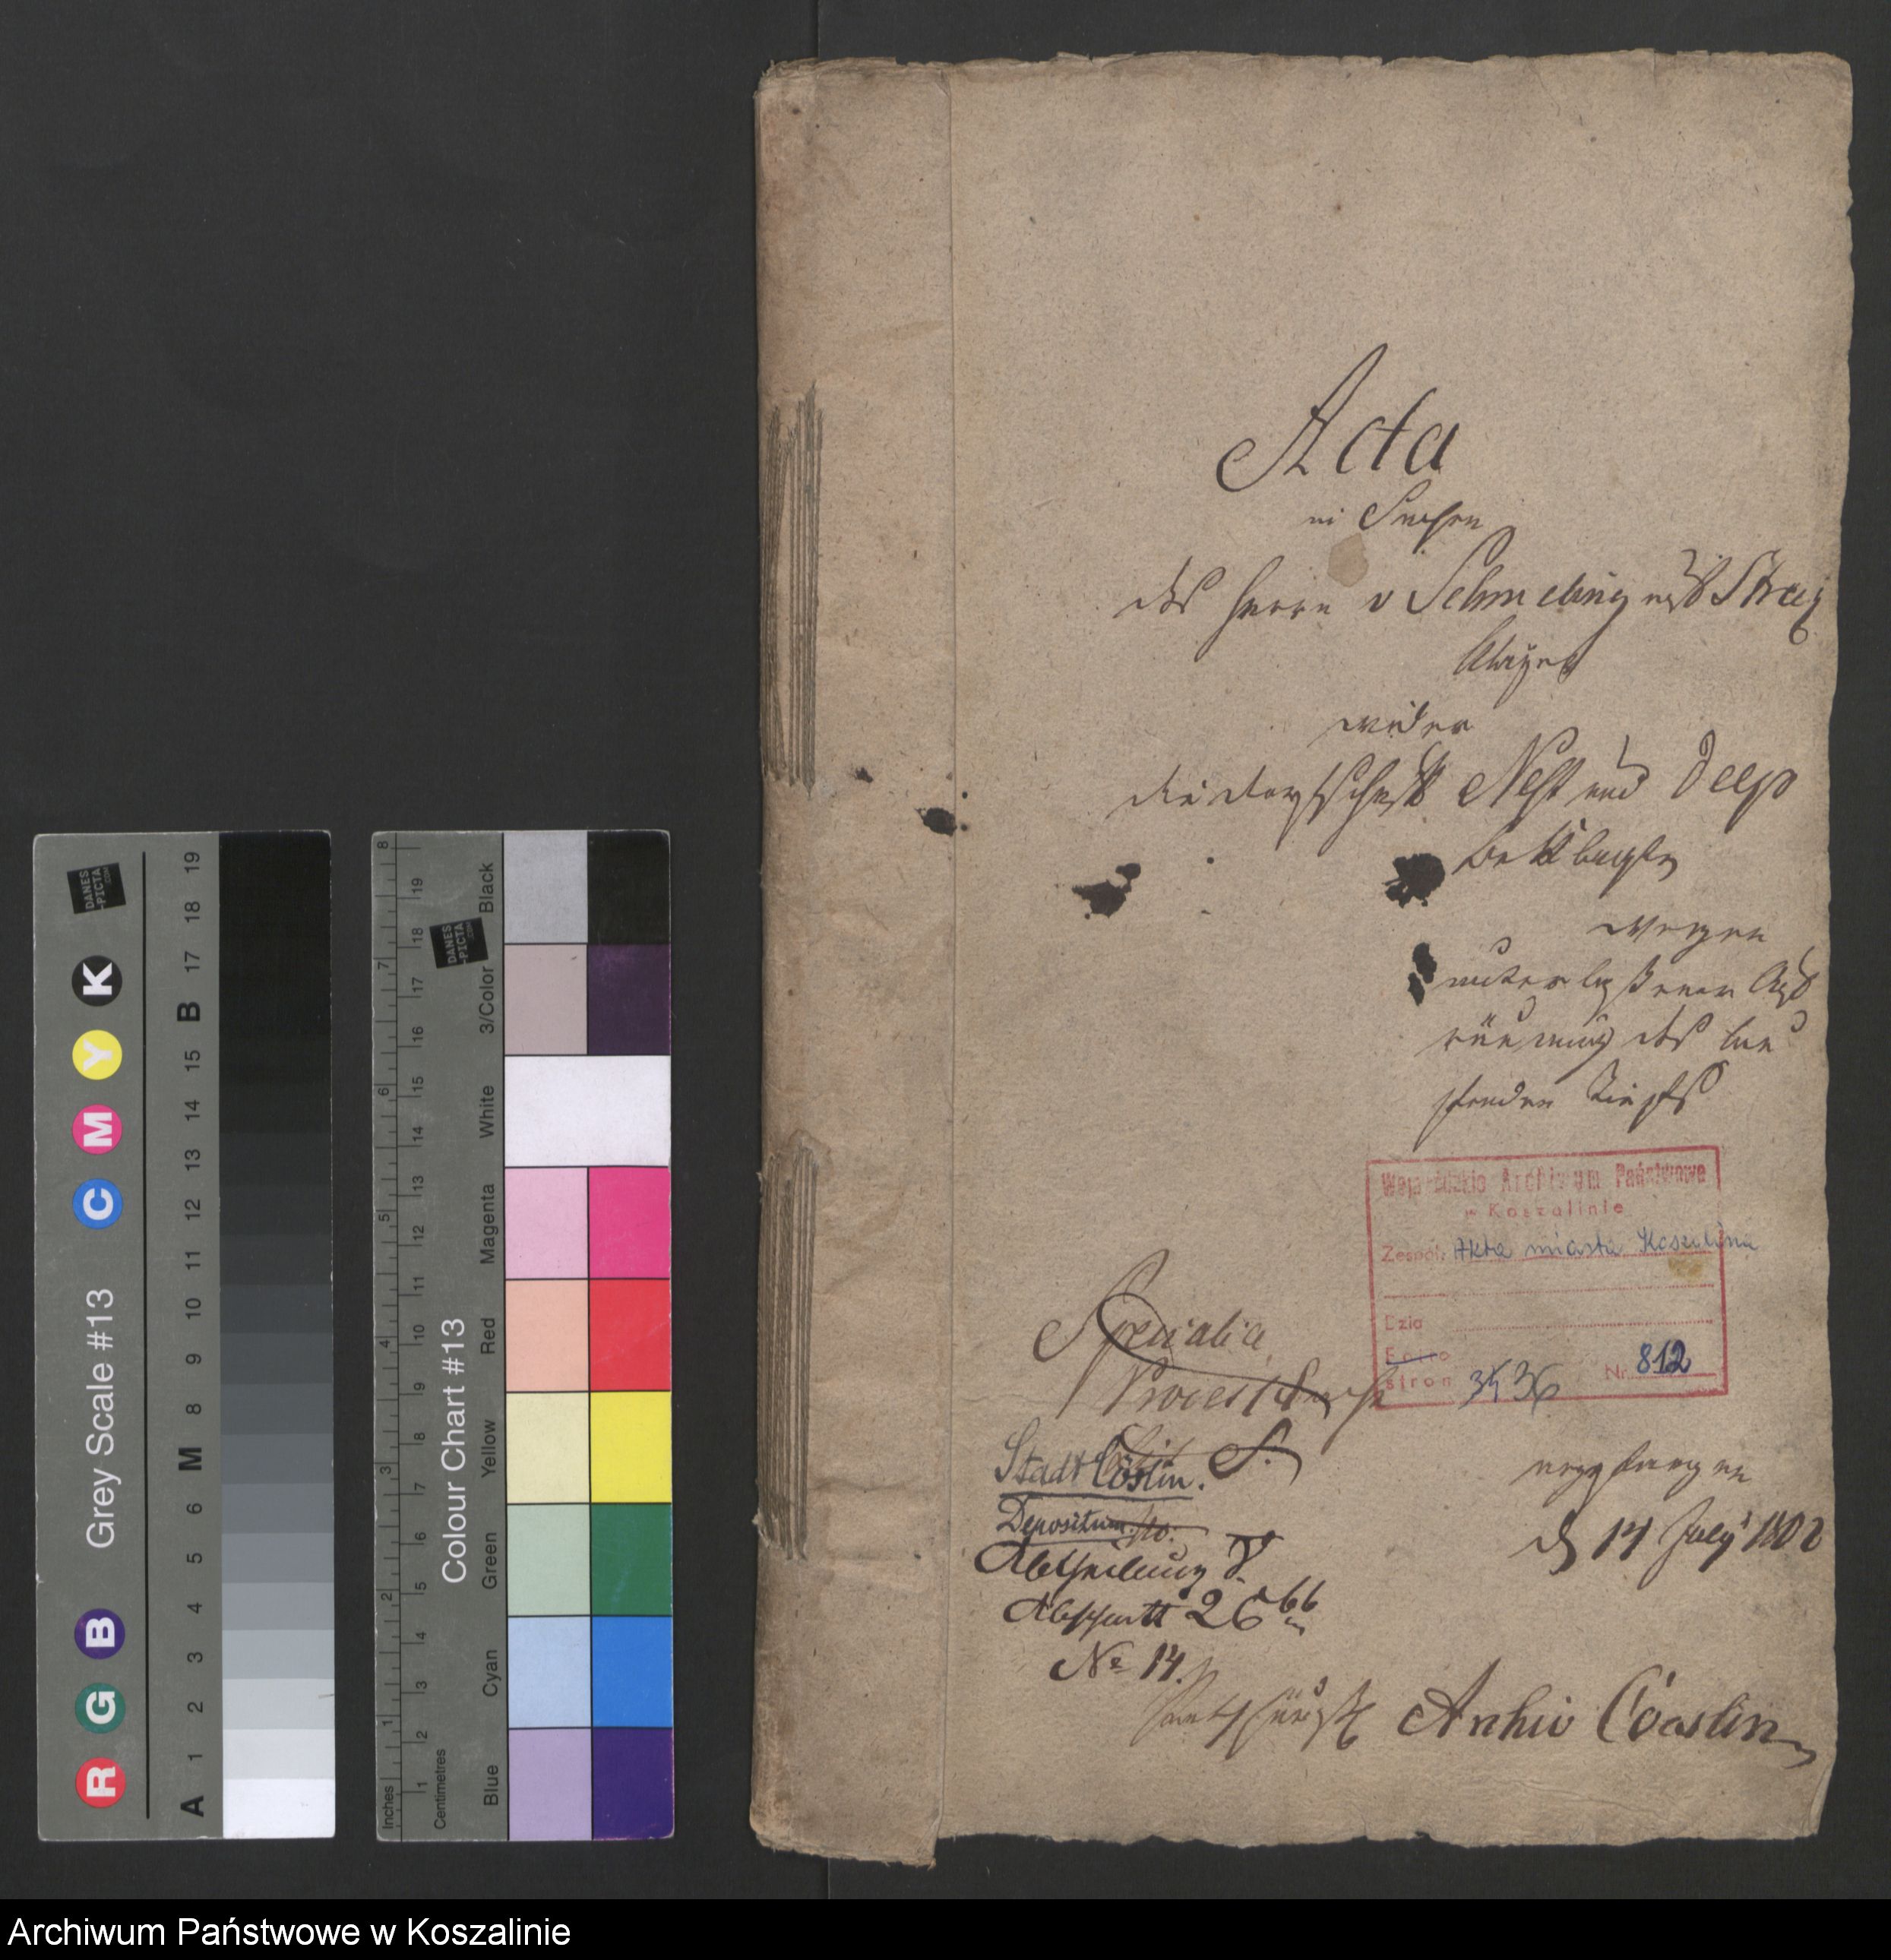 Acta
in Sachen
des Herrn v Schmeling auf Streiz
Kläger
wider
die Dorfschaft Nest und Deep
Beklagte
wegen
unterlaßener Auf
räumung des
Tiefs
Wojewódzkie Archiwum Państwowe
w Koszalinie
Zespół: Akta miasta Koszalina
Dział
stron 36 Nr 812
Specialia
Process Sache
Stadt Cöslin.
S.
Depositum
Abtheilung V.
Abschnitt 26 bb
No 14.
angefangen
d 14 July 1802
Archiv Cöeslin
Grey Scale #13
R G B C M Y K
A 1 2 3 4 5 6 M 8 9 10 11 12 13 14 15 B 17 18 19
DANES
-PICTA
.COM
Colour Chart #13
Blue Cyan Green Yellow Red Magenta White 3/Color Black
Inches 1 2 3 4 5 6 7 8
Centimetres 1 2 3 4 5 6 7 8 9 10 11 12 13 14 15 16 17 18 19
DANES
-PICTA
.COM
Archiwum Państwowe w Koszalinie